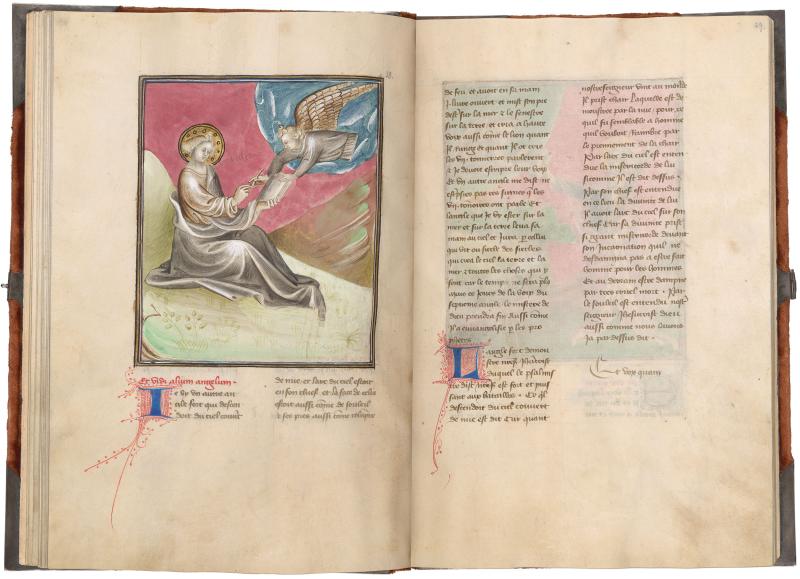 28.
Et vidi alium angelum.
Ie vy un autre an
gele fort qui descen
doit du ciel couvert
de nue, et larc du ciel estoit
en son chief et la face de celui
estoit aussi come de souleil
et ses pies aussi come colompne
29.
de feu et avoit en sa main
I livre ouvert et mist son pie
destre sur la mer et le senestre
sur la terre, et cria a haute
voix aussi come le lyon quant
il rungit et quant il ot crie
les vij. tonnerres parlerent
et je devoie escripre leur voix
Et un autre angle me dist ne
escripses pas
vij. tonnoires ont parle Et
langle que Je vy ester sur la
mer et sur la terre leva sa
main au ciel et Jura p celluy
qui vit ou siecle des siecles
qui crea le ciel la terre et la
mer et toutes les choses qui y
sont car le temps ne sera plus
mais es jours de la voix du
septieme angle, le mistere de
dieu prendra fin aussi come
Il a p ses pro
phetes
Langle fort demon
stre nostre Jhesucrist
duquel le psalmis
te dist nostre est fort et puis
sant aux batailles. Ce quil
descendoit du ciel couvert
de nue est dit Car quant
nostreseigneur vint au monde
Il prist chair Laquelle est de
monstree par la nue, pour ce
quil fu semblable a homme
qui vouloit Raimbre par
le prennement de la chair
Par larc du ciel est enten
due la misericorde de lui
si comme Il est dit dessus.
Par son chief est entendue
en ce lieu la divinite de lui
Il avoit larc du ciel sur son
chief Car sa divinite prist
si grant misericorde devant
son Incarnation quil ne
desdaingna pas a estre fait
homme pour les hommes
Et au derrain estre dampne
par tres cruel mort. Par
le souleil est entendu nostre
seigneur Jhesucrist dieu
aussi comme nous lavons
Ja par dessus dit.
Et vox quam